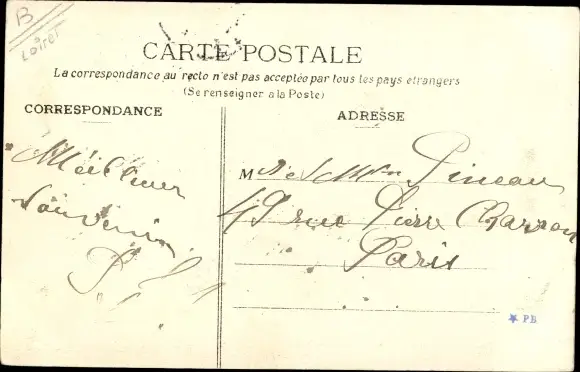 B
Loiret
CARTE POSTALE
La correspondance au recto n'est pas acceptée par tous les pays étrangers
(Se renseigner à la Poste)
CORRESPONDANCE
ADRESSE
Meilleur
Souvenir
M Pineau
49 rue Pierre Charron
Paris
★ P.B.